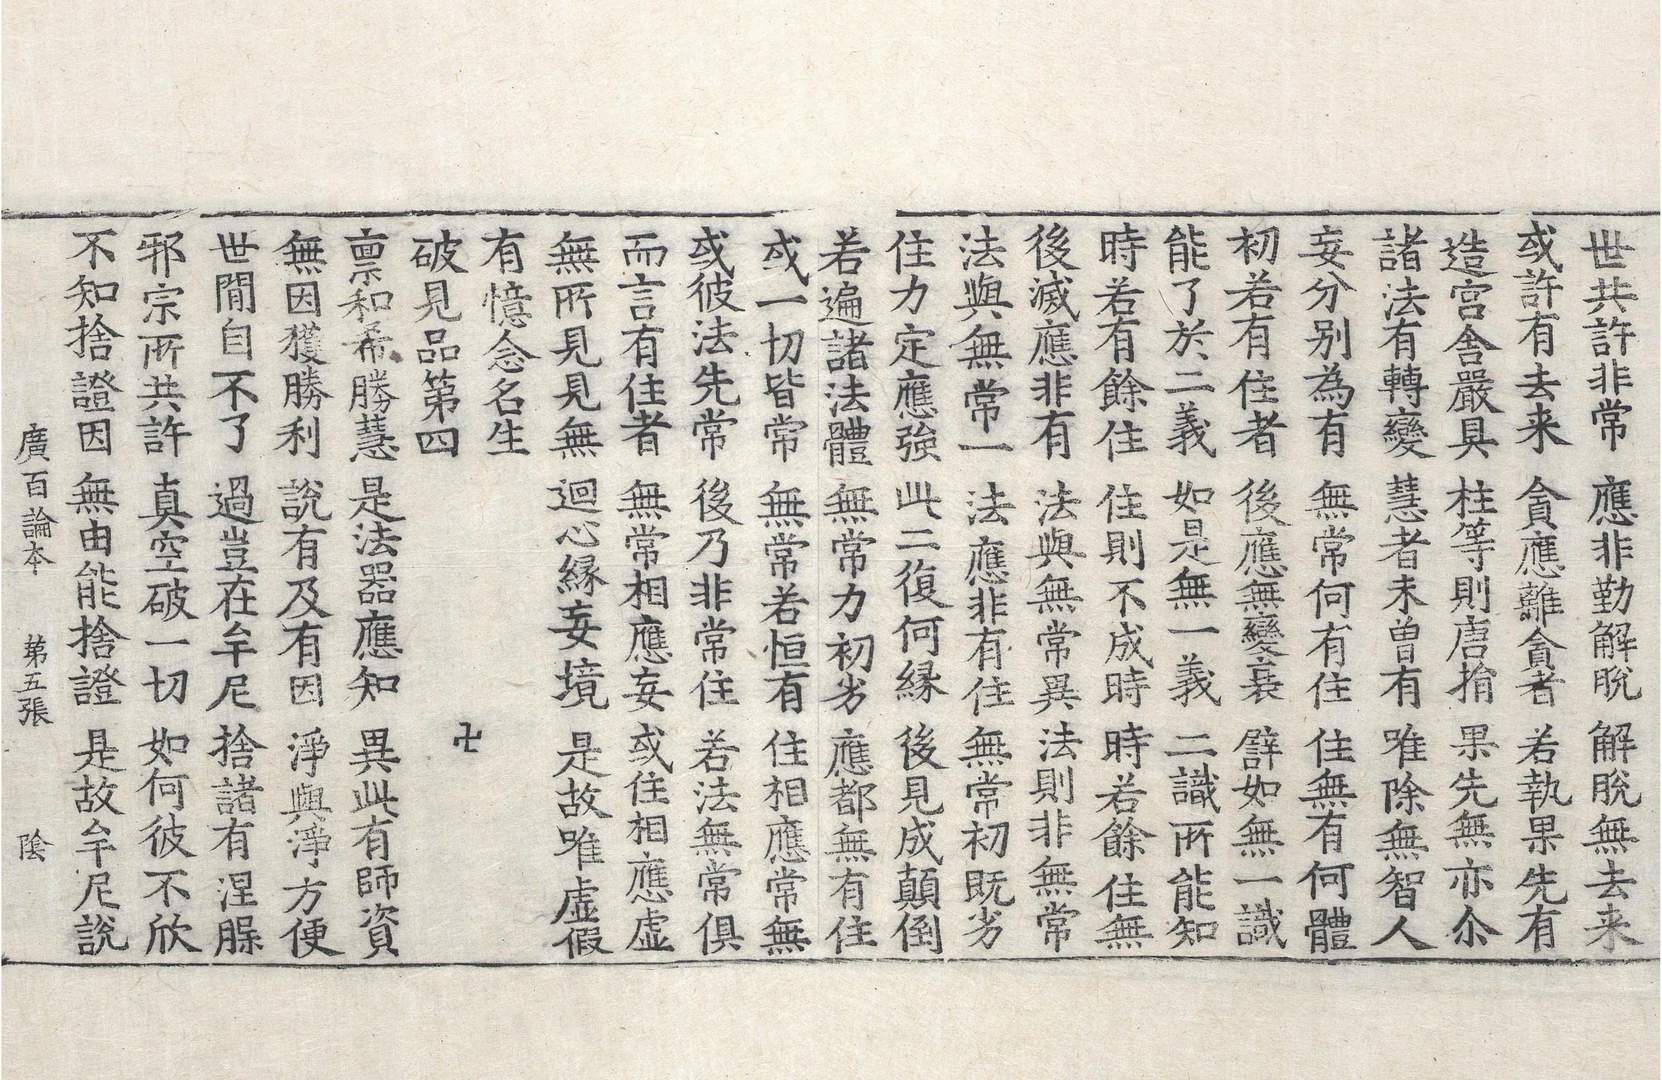 世共許非常 應非勤解脫 解脫無去来
或許有去来 貪應離貪者 若執果先有
造宮舍嚴具 柱等則唐捐 果先無亦尒
諸法有轉變 慧者未曾有 唯除無智人
妄分别為有 無常何有住 住無有何體
初若有住者 後應無變衰 譬如無一識
能了於二義 如是無一義 二識所能知
時若有餘住 住則不成時 時若餘住無
後滅應非有 法與無常異 法則非無常
法與無常一 法應非有住 無常初既劣
住力定應強 此二復何縁 後見成顛倒
若遍諸法體 無常力初劣 應都無有住
或一切皆常 無常若恒有 住相應常無
或彼法先常 後乃非常住 若法無常俱
而言有住者 無常相應妄 或住相應虛
無所見見無 迴心縁妄境 是故唯虛假
有憶念名生
破見品第四 卍
稟和希勝慧 是法器應知 異此有師資
無因獲勝利 說有及有因 淨與淨方便
世間自不了 過豈在牟尼 捨諸有涅槃
邪宗所共許 真空破一切 如何彼不欣
不知捨證因 無由能捨證 是故牟尼說
廣百論本 第五張 陰